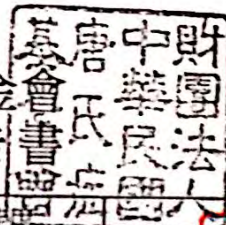 財團法人
中華民國
唐氏症
基會書